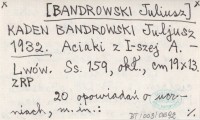 x [BANDROWSKI Juliusz] x
KADEN BANDROWSKI Juljusz
1932. Aciaki z I-szej A. -
Lwów. Ss. 159, okł., cm 19x13.
z RP
20 opowiadań o ucz-
niach, m.in.:
%.